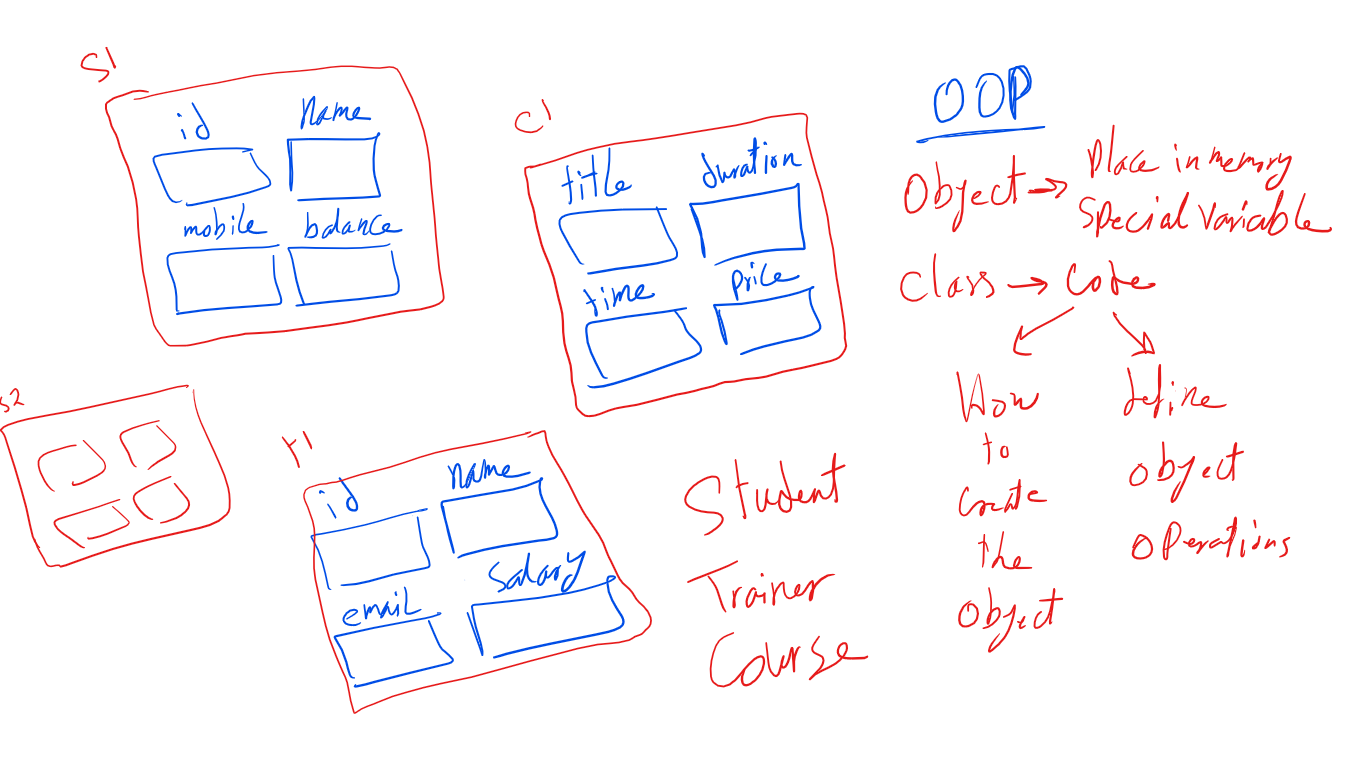 S1
id Name
mobile balance
C1
title duration
time price
S2
id name
email Salary
Student
Trainer
Course
OOP
Object → Place in memory
Special Variable
Class → Code
How
to
create
the
object
define
object
operations